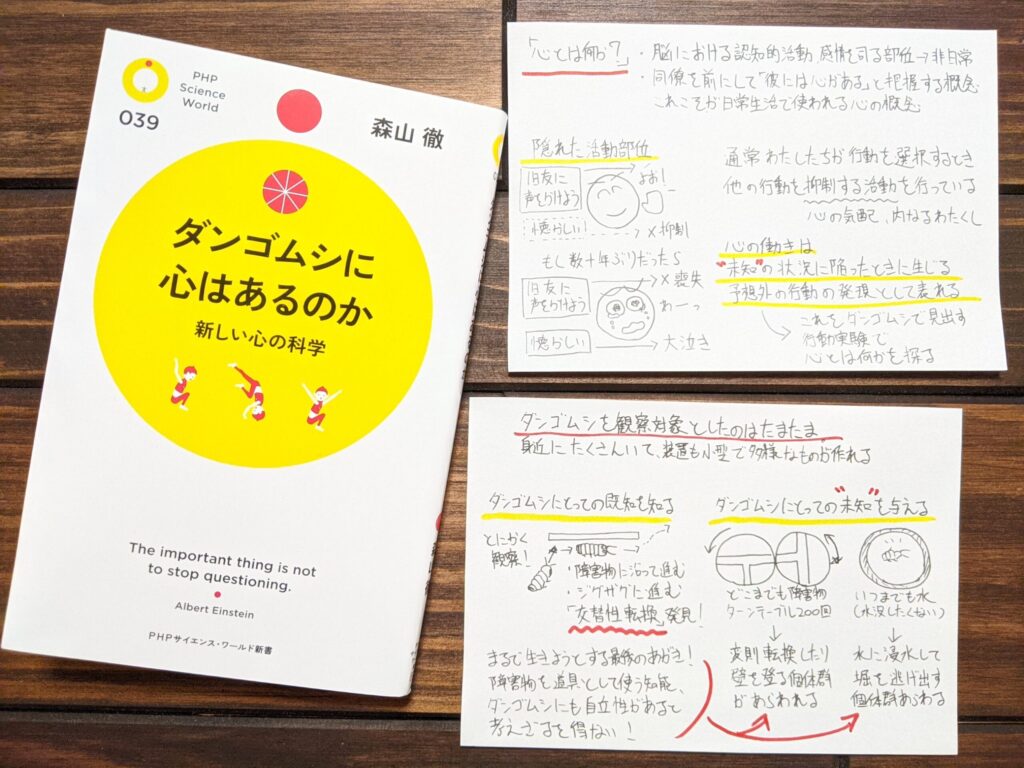 PHP
Science
World
039
森山 徹
ダンゴムシに
心はあるのか
新しい心の科学
The important thing is not
to stop questioning.
Albert Einstein
PHPサイエンス・ワールド新書
「心とは何か?」
・脳における認知的活動 感情を司る部位→非日常
・同僚を前にして「彼には心がある」と把握する概念
これこそが日常生活で使われる心の概念
隠れた活動部位
旧友に
声をかけよう
よお!
懐かしい
×抑制
もし数十年ぶりだったら
旧友に
声をかけよう
×喪失
わーっ
懐かしい
大泣き
通常わたしたちが行動を選択するとき
他の行動を抑制する活動を行っている
心の気配、内なるわたくし
心の働きは
"未知"の状況に陥ったときに生じる
予想外の行動の発現として表れる
これをダンゴムシで見出す
行動実験で
心とは何かを探る
ダンゴムシを観察対象としたのはたまたま
身近にたくさんいて、装置も小型で多様なものが作れる
ダンゴムシにとっての既知を知る
とにかく
観察!
・障害物に沿って進む
・ジグザグに進む
「交替性転換」発見!
まるで生きようとする最後のあがき!
障害物を道具として使う知能、
ダンゴムシにも自立性があると
考えざるを得ない!
ダンゴムシにとっての"未知"を与える
どこまでも障害物
ターンテーブル200回
↓
変則転換したり
壁を登る個体群
があらわれる
いつまでも水
(水没したくない)
↓
水に浸水して
堀を逃げ出す
個体群あらわる